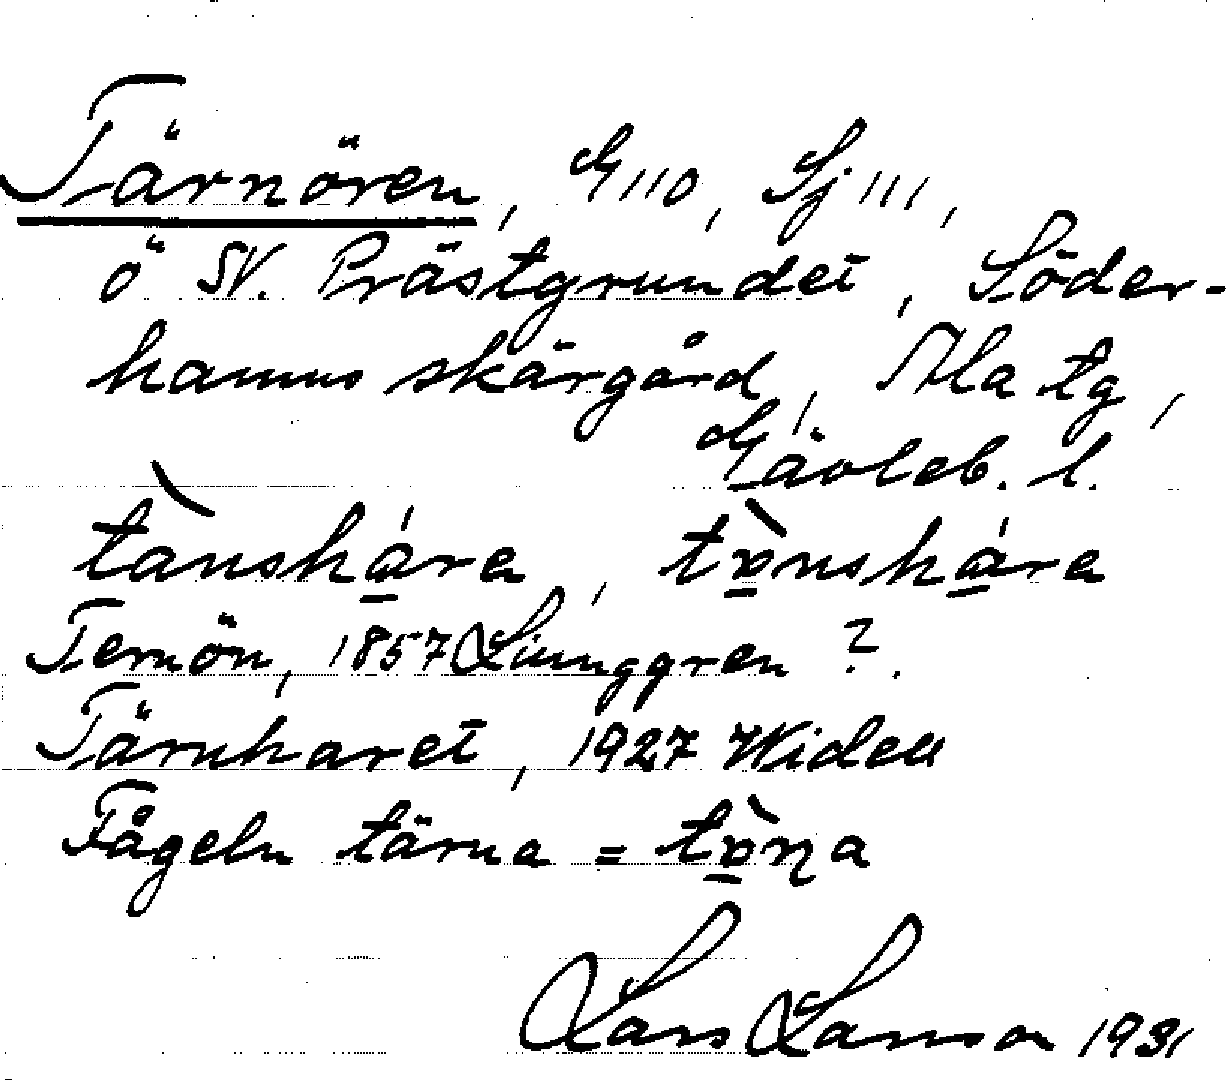 Tärnören, G 110, Sj 111,
ö SV. Prästgrundet, Söder-
hamns skärgård, Ala tg,
Gävleb. l.
tànshá̱re, tɒ̱̀nshá̱re
Ternön, 1857 Liunggren ?.
Tärnharet, 1927 Widell
Fågeln tärna = tɒ̱̀ɳa
Lars Larsson 1931